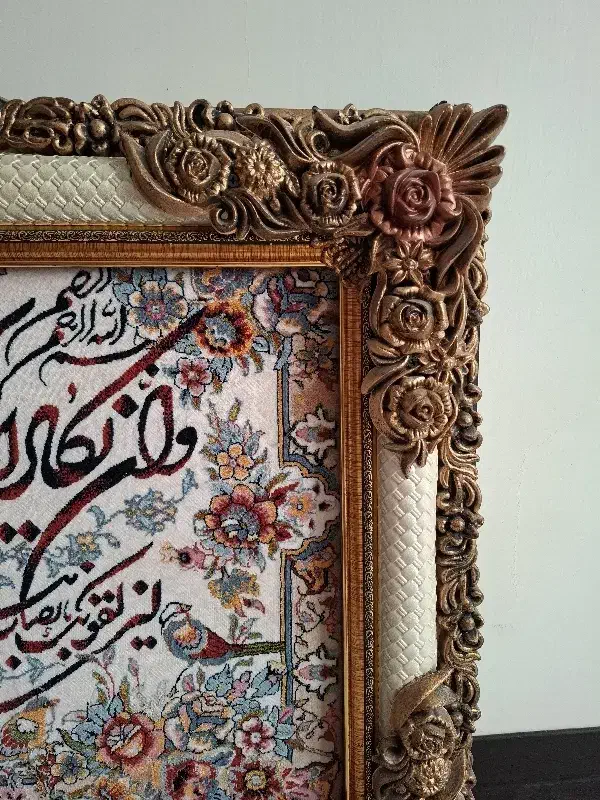 بسم الله الرحمن الرحیم
وان یکاد
لیزلقونک بابصا